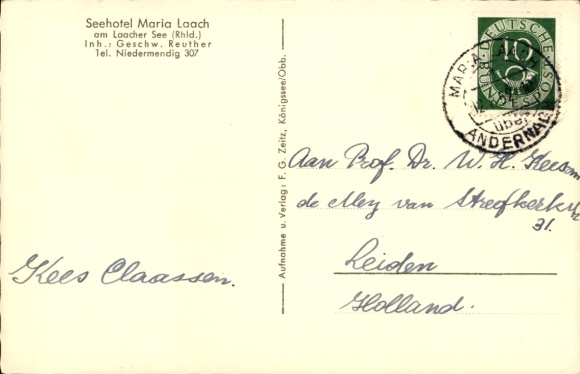 Seehotel Maria Laach
am Laacher See (Rhld.)
Inh.: Geschw. Reuther
Tel. Niedermendig 307
Aufnahme u. Verlag: F. G. Zeitz, Königssee/Obb.
DEUTSCHE
BUNDESPOST
10
MARIA LAACH
über
ANDERNACH
Aan Prof. Dr. W. H. Keesom
de Mey van Streefkerkstr
31.
Leiden
Holland.
Kees Claassen.